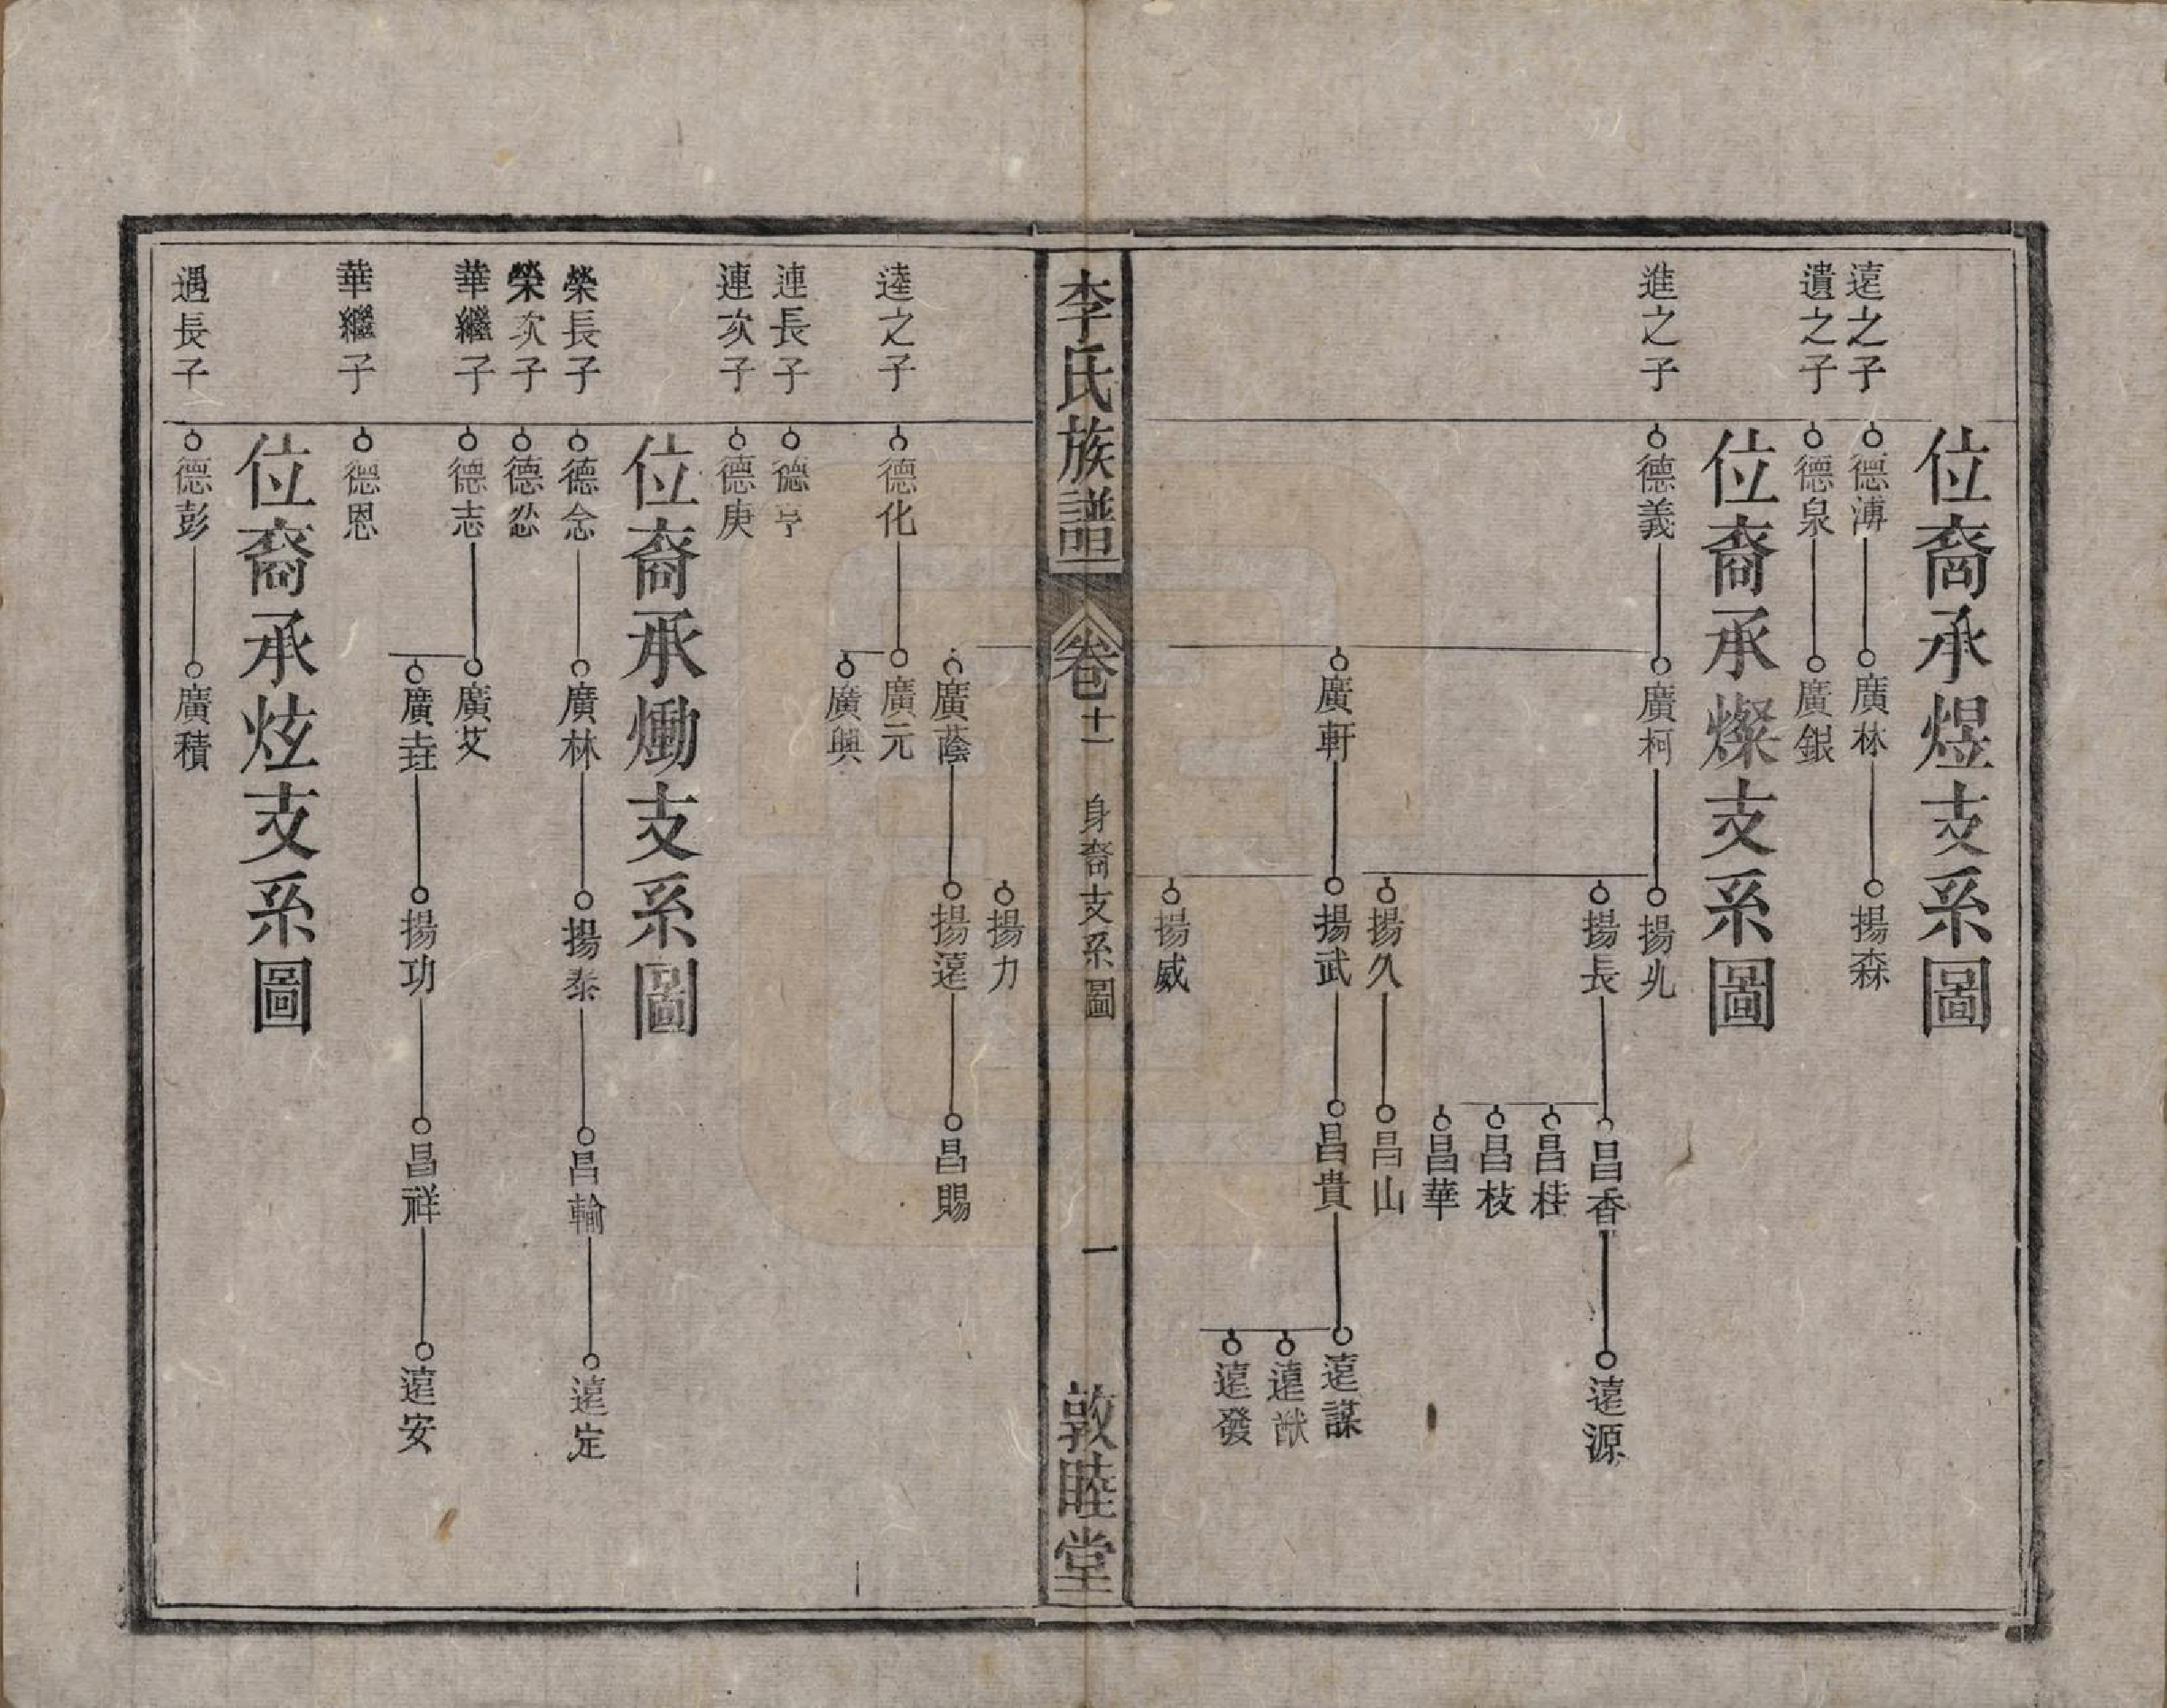 位裔承煜支系圖
遠之子
德溥
廣林
揚森
遺之子
德泉
廣銀
位裔承燦支系圖
進之子
德義
廣柯
揚兆
揚長
昌香
遠源
昌桂
昌枝
昌華
揚久
昌山
廣軒
揚武
昌貴
遠謀
遠猷
遠發
揚威
李氏族譜
卷十一
身裔支系圖
一
敦睦堂
揚力
廣蔭
揚遠
昌賜
逵之子
德化
廣元
廣興
連長子
德亨
連次子
德庚
位裔承勳支系圖
榮長子
德念
廣林
揚泰
昌輪
遠定
榮次子
德忿
華繼子
德志
廣艾
廣垚
揚功
昌祥
遠安
華繼子
德恩
位裔承炫支系圖
遇長子
德彭
廣積